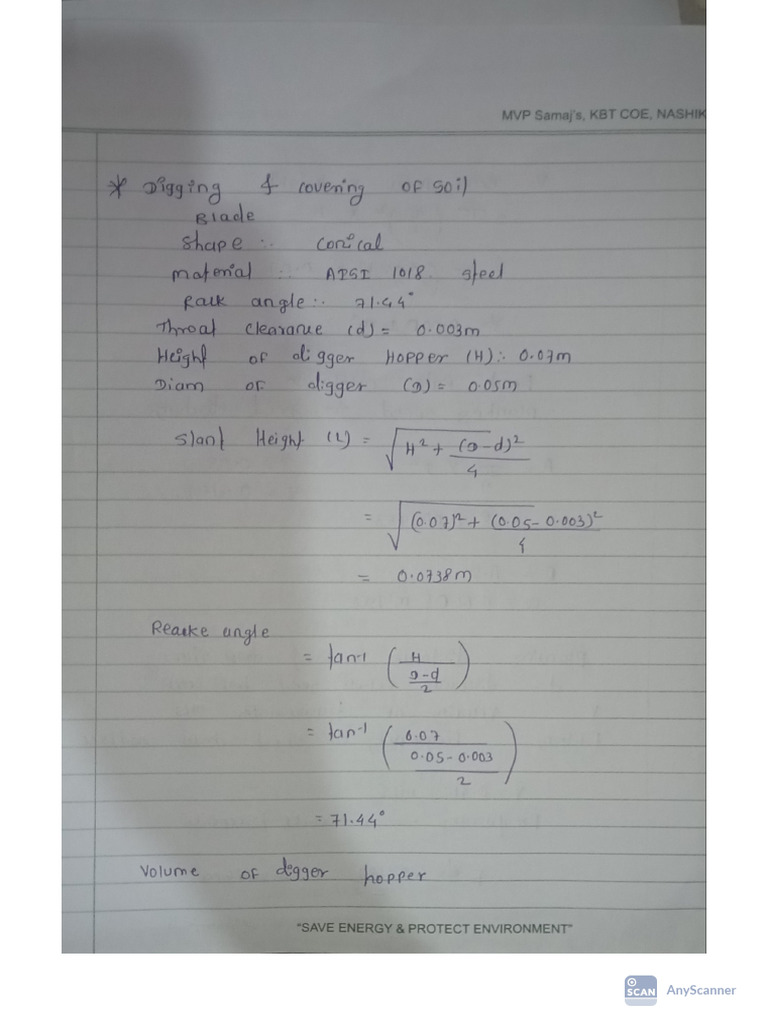 MVP Samaj's, KBT COE, NASHIK
* Digging & covering of soil
Blade
Shape :. Conical
Material :. AISI 1018 steel
Rack angle :. 71.44°
Throat clearance (d) = 0.003m
Height of digger Hopper (H) :. 0.07m
Diam of digger (D) = 0.05m
Slant Height (L) = √(H² + (D-d)²/4)
= √((0.07)² + (0.05-0.003)²/4)
= 0.0738m
Reacke angle
= tan-1 (H/((D-d)/2))
= tan-1 (0.07/((0.05-0.003)/2))
= 71.44°
Volume of digger hopper
"SAVE ENERGY & PROTECT ENVIRONMENT"
SCAN AnyScanner